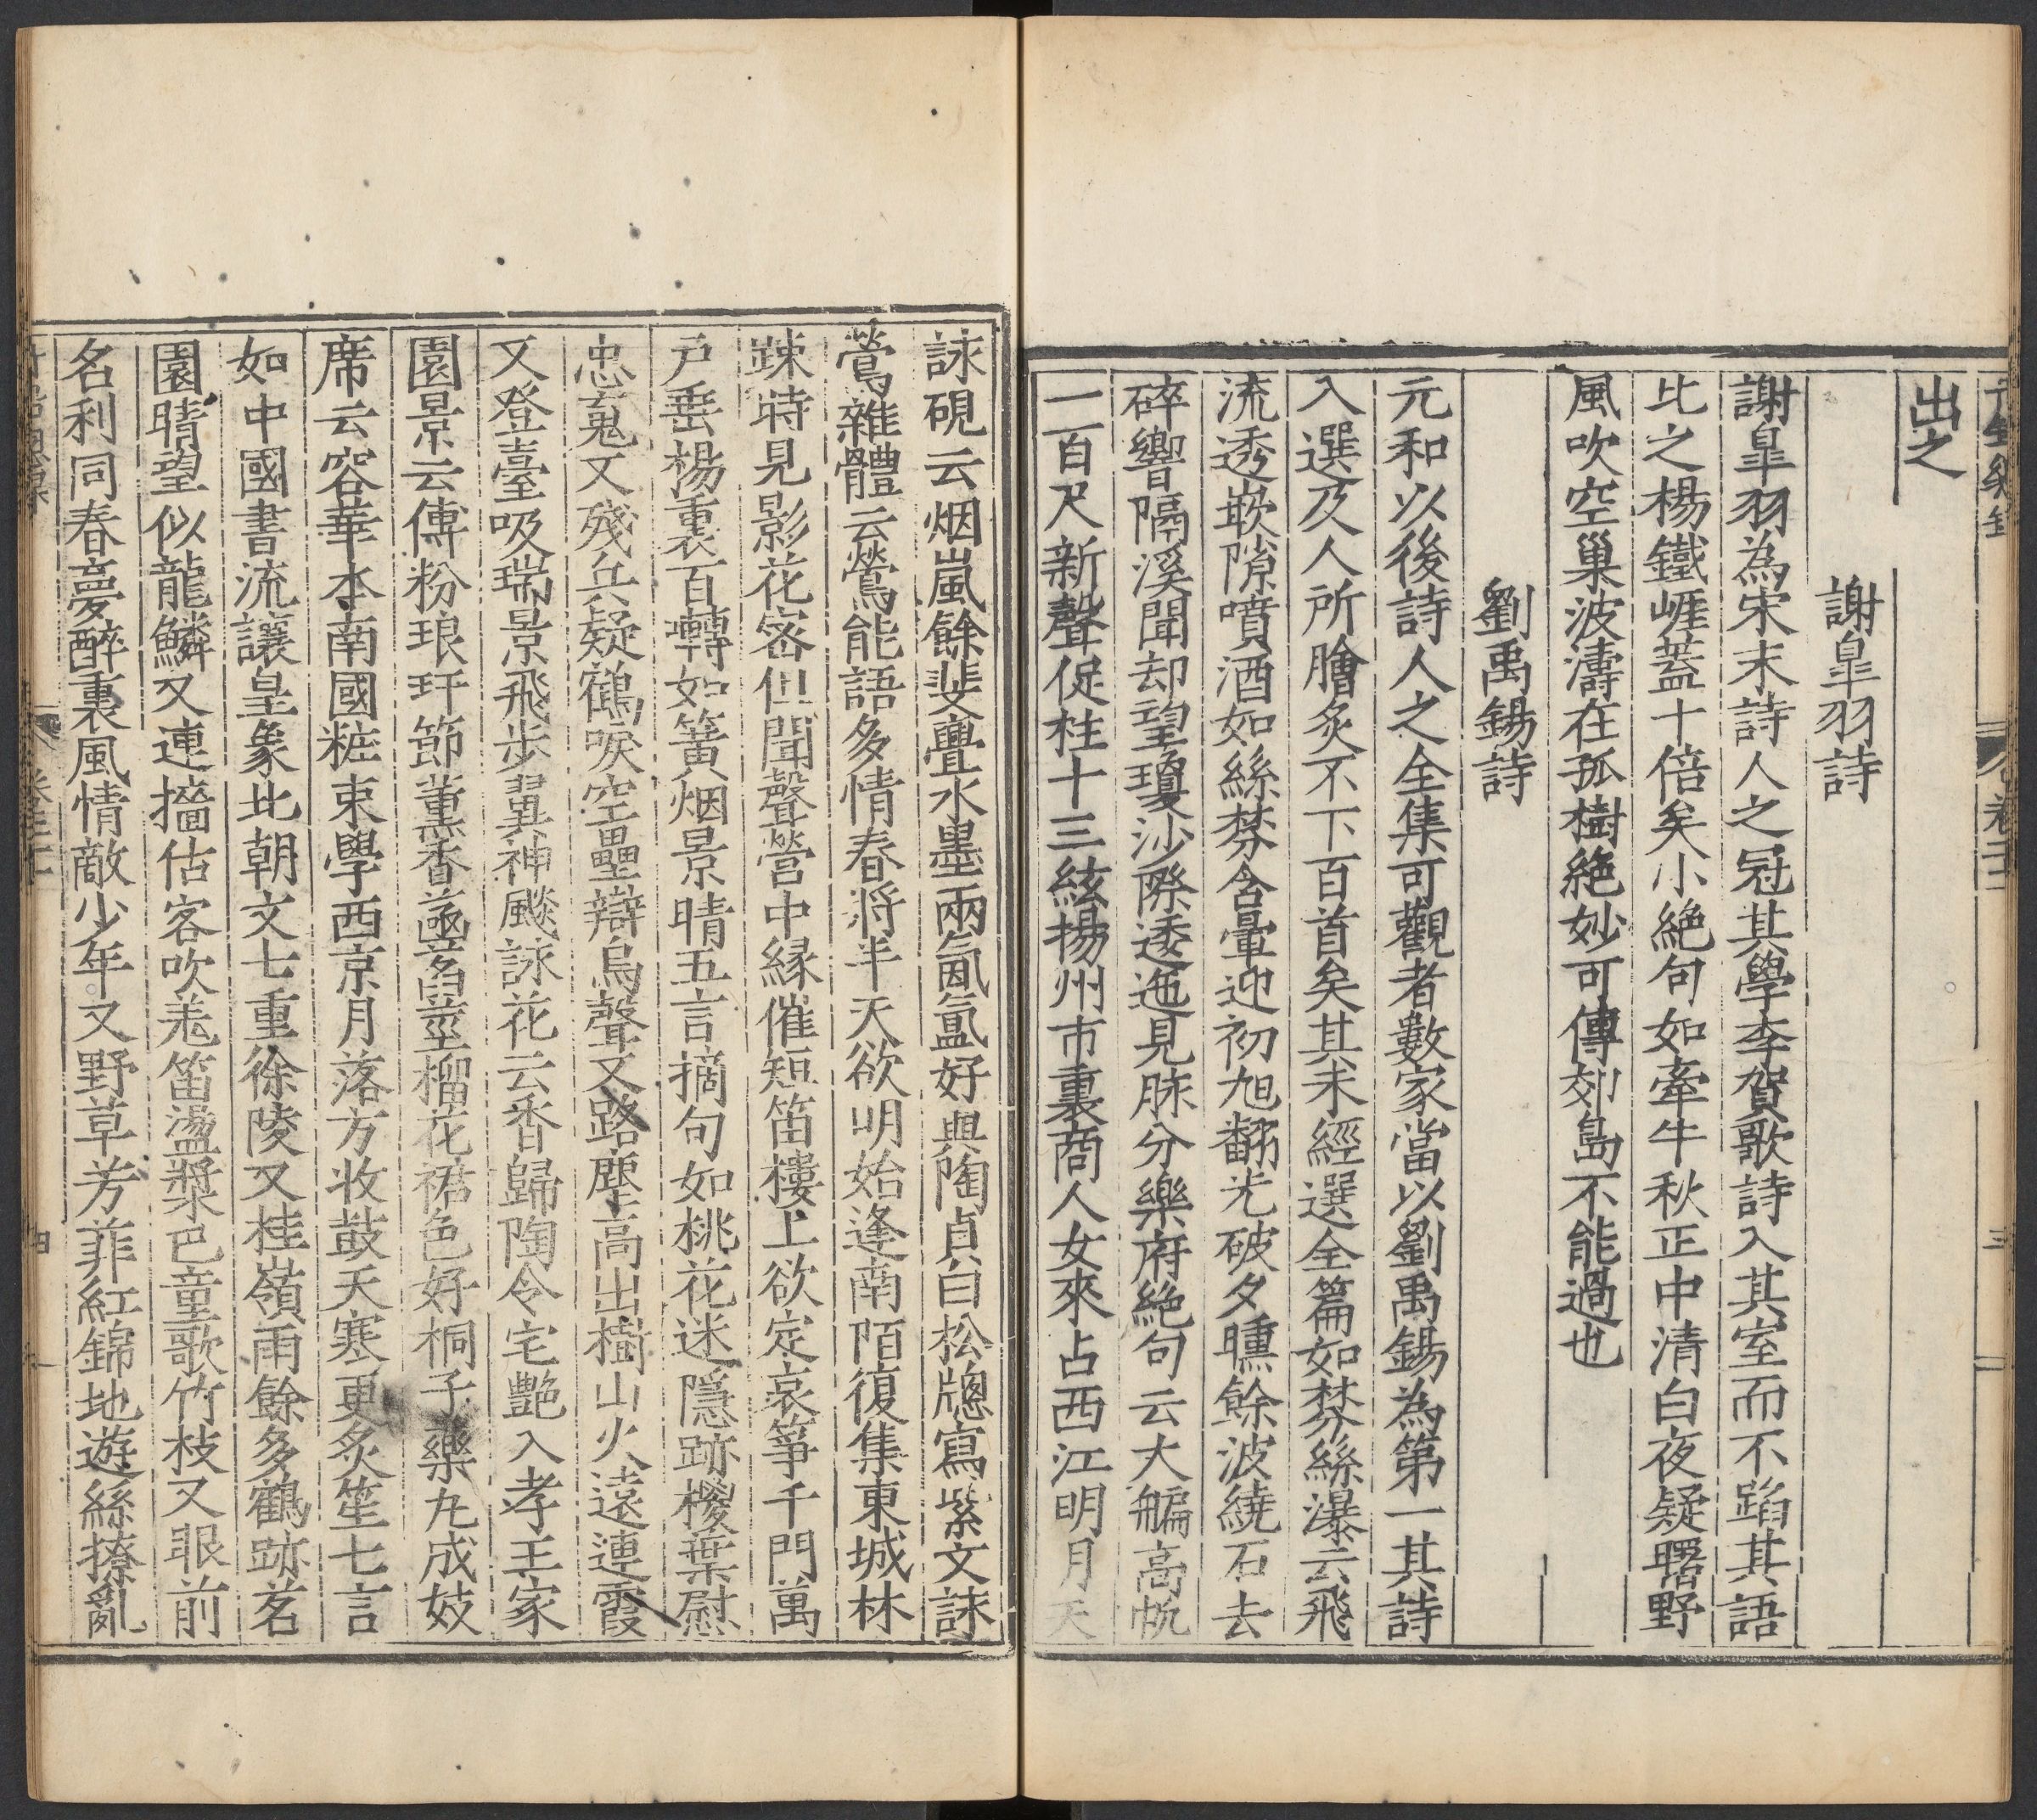 出之
謝皐羽詩
謝皐羽為宋末詩人之冠其學李賀歌詩入其室而不蹈其語
比之楊鐵崕蓋十倍矣小絶句如牽牛秋正中清白夜疑曙野
風吹空巢波濤在孤樹絶妙可傳郊島不能過也
劉禹錫詩
元和以後詩人之全集可觀者數家當以劉禹錫為第一其詩
入選及人所膾炙不下百首矣其未經選全篇如棼絲瀑云飛
流透嵌隙噴洒如絲棼含暈迎初旭翻光破夕曛餘波繞石去
碎響隔溪聞却望瓊沙際逶迤見脉分樂府絶句云大艑高帆
一百尺新聲促柱十三絃揚州市裏商人女來占西江明月天
詠硯云烟嵐餘斐亹水墨兩氤氳好與陶貞白松牕寫紫文詠
鶯雜體云鶯能語多情春將半天欲明始逢南陌復集東城林
踈時見影花宻但聞聲營中縁催短笛樓上欲定哀箏千門萬
戸垂楊裏百囀如簧烟景晴五言摘句如桃花迷隱跡楥葉慰
忠䰟又殘兵疑鶴唳空壘辯烏聲又路塵高出樹山火遠連霞
又登臺吸瑞景飛步翼神颷詠花云香歸陶令宅艷入孝王家
園景云傅粉琅玕節薰香菡萏莖榴花裙色好桐子藥丸成妓
席云容華本南國粧束學西京月落方收鼓天寒更炙笙七言
如中國書流讓皇象北朝文士重徐陵又桂嶺雨餘多鶴跡茗
園晴望似龍鱗又連檣估客吹羌笛盪槳巴童歌竹枝又眼前
名利同春夢醉裏風情敵少年又野草芳菲紅錦地遊絲撩亂